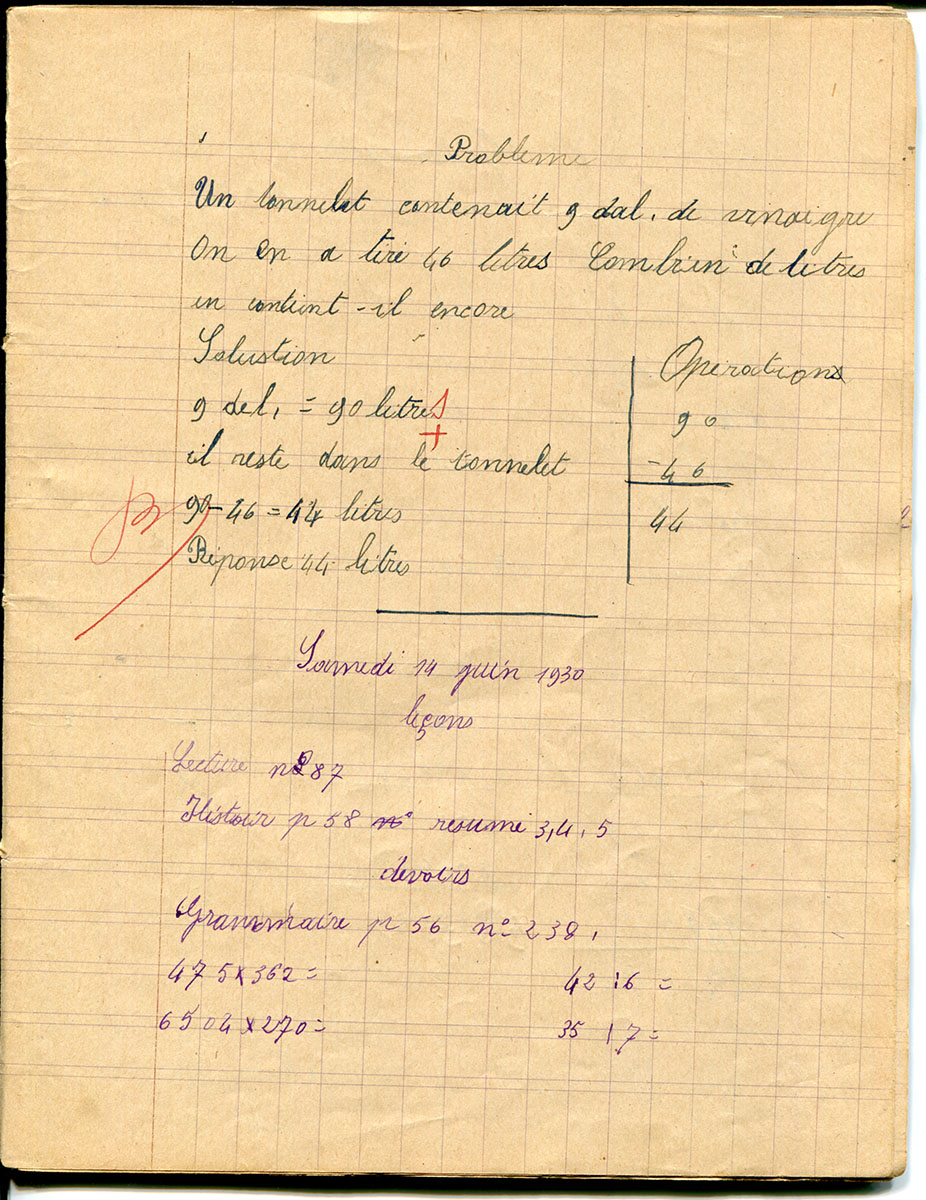 Problème
Un tonnelet contenait 9 dal. de vinaigre
On en a tiré 46 litres Combien de litres
en contient-il encore
Solustion
Opérations
9 del, = 90 litres
90
il reste dans le tonnelet
-46
90-46 = 44 litres
44
Réponse 44 litres
B
Samedi 14 juin 1930
leçons
Lecture n° 87
Histoir p 58 n° resumé 3,4,5
devoirs
Grammaire p 56 n° 238.
475x362=
42:6=
6504x270=
35:7=